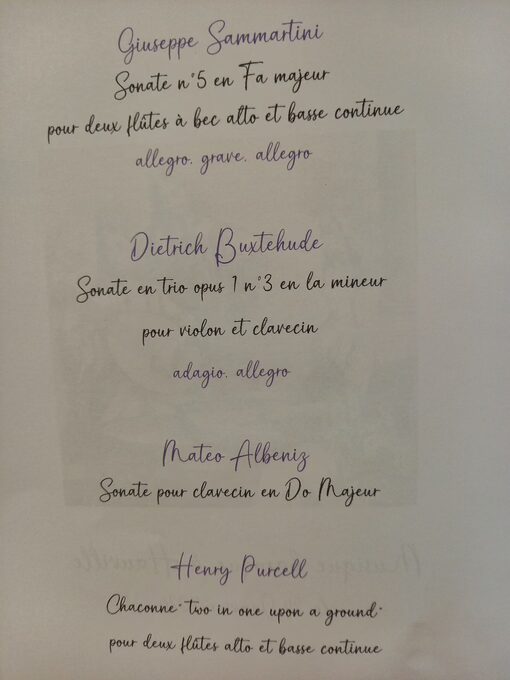 Giuseppe Sammartini
Sonate n°5 en Fa majeur
pour deux flûtes à bec alto et basse continue
allegro, grave, allegro
Dietrich Buxtehude
Sonate en trio opus 1 n°3 en la mineur
pour violon et clavecin
adagio, allegro
Mateo Albeniz
Sonate pour clavecin en Do Majeur
Henry Purcell
Chaconne "two in one upon a ground"
pour deux flûtes alto et basse continue